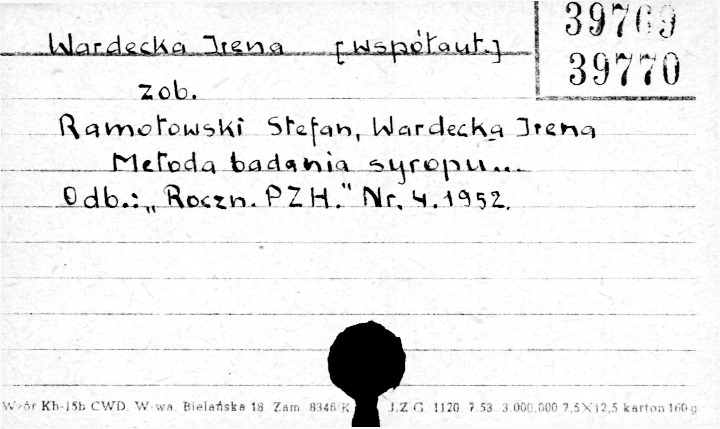 39769
39770
Wardecka Irena [współaut.]
zob.
Ramotowski Stefan, Wardecka Irena
Metoda badania syropu...
Odb.: „Roczn. PZH." Nr. 4. 1952.
Wzór Kb-15b CWD, W-wa, Bielańska 18 Zam. 8346/K J.Z.G. 1120 7.53 3.000.000 7,5×12,5 karton 160 g